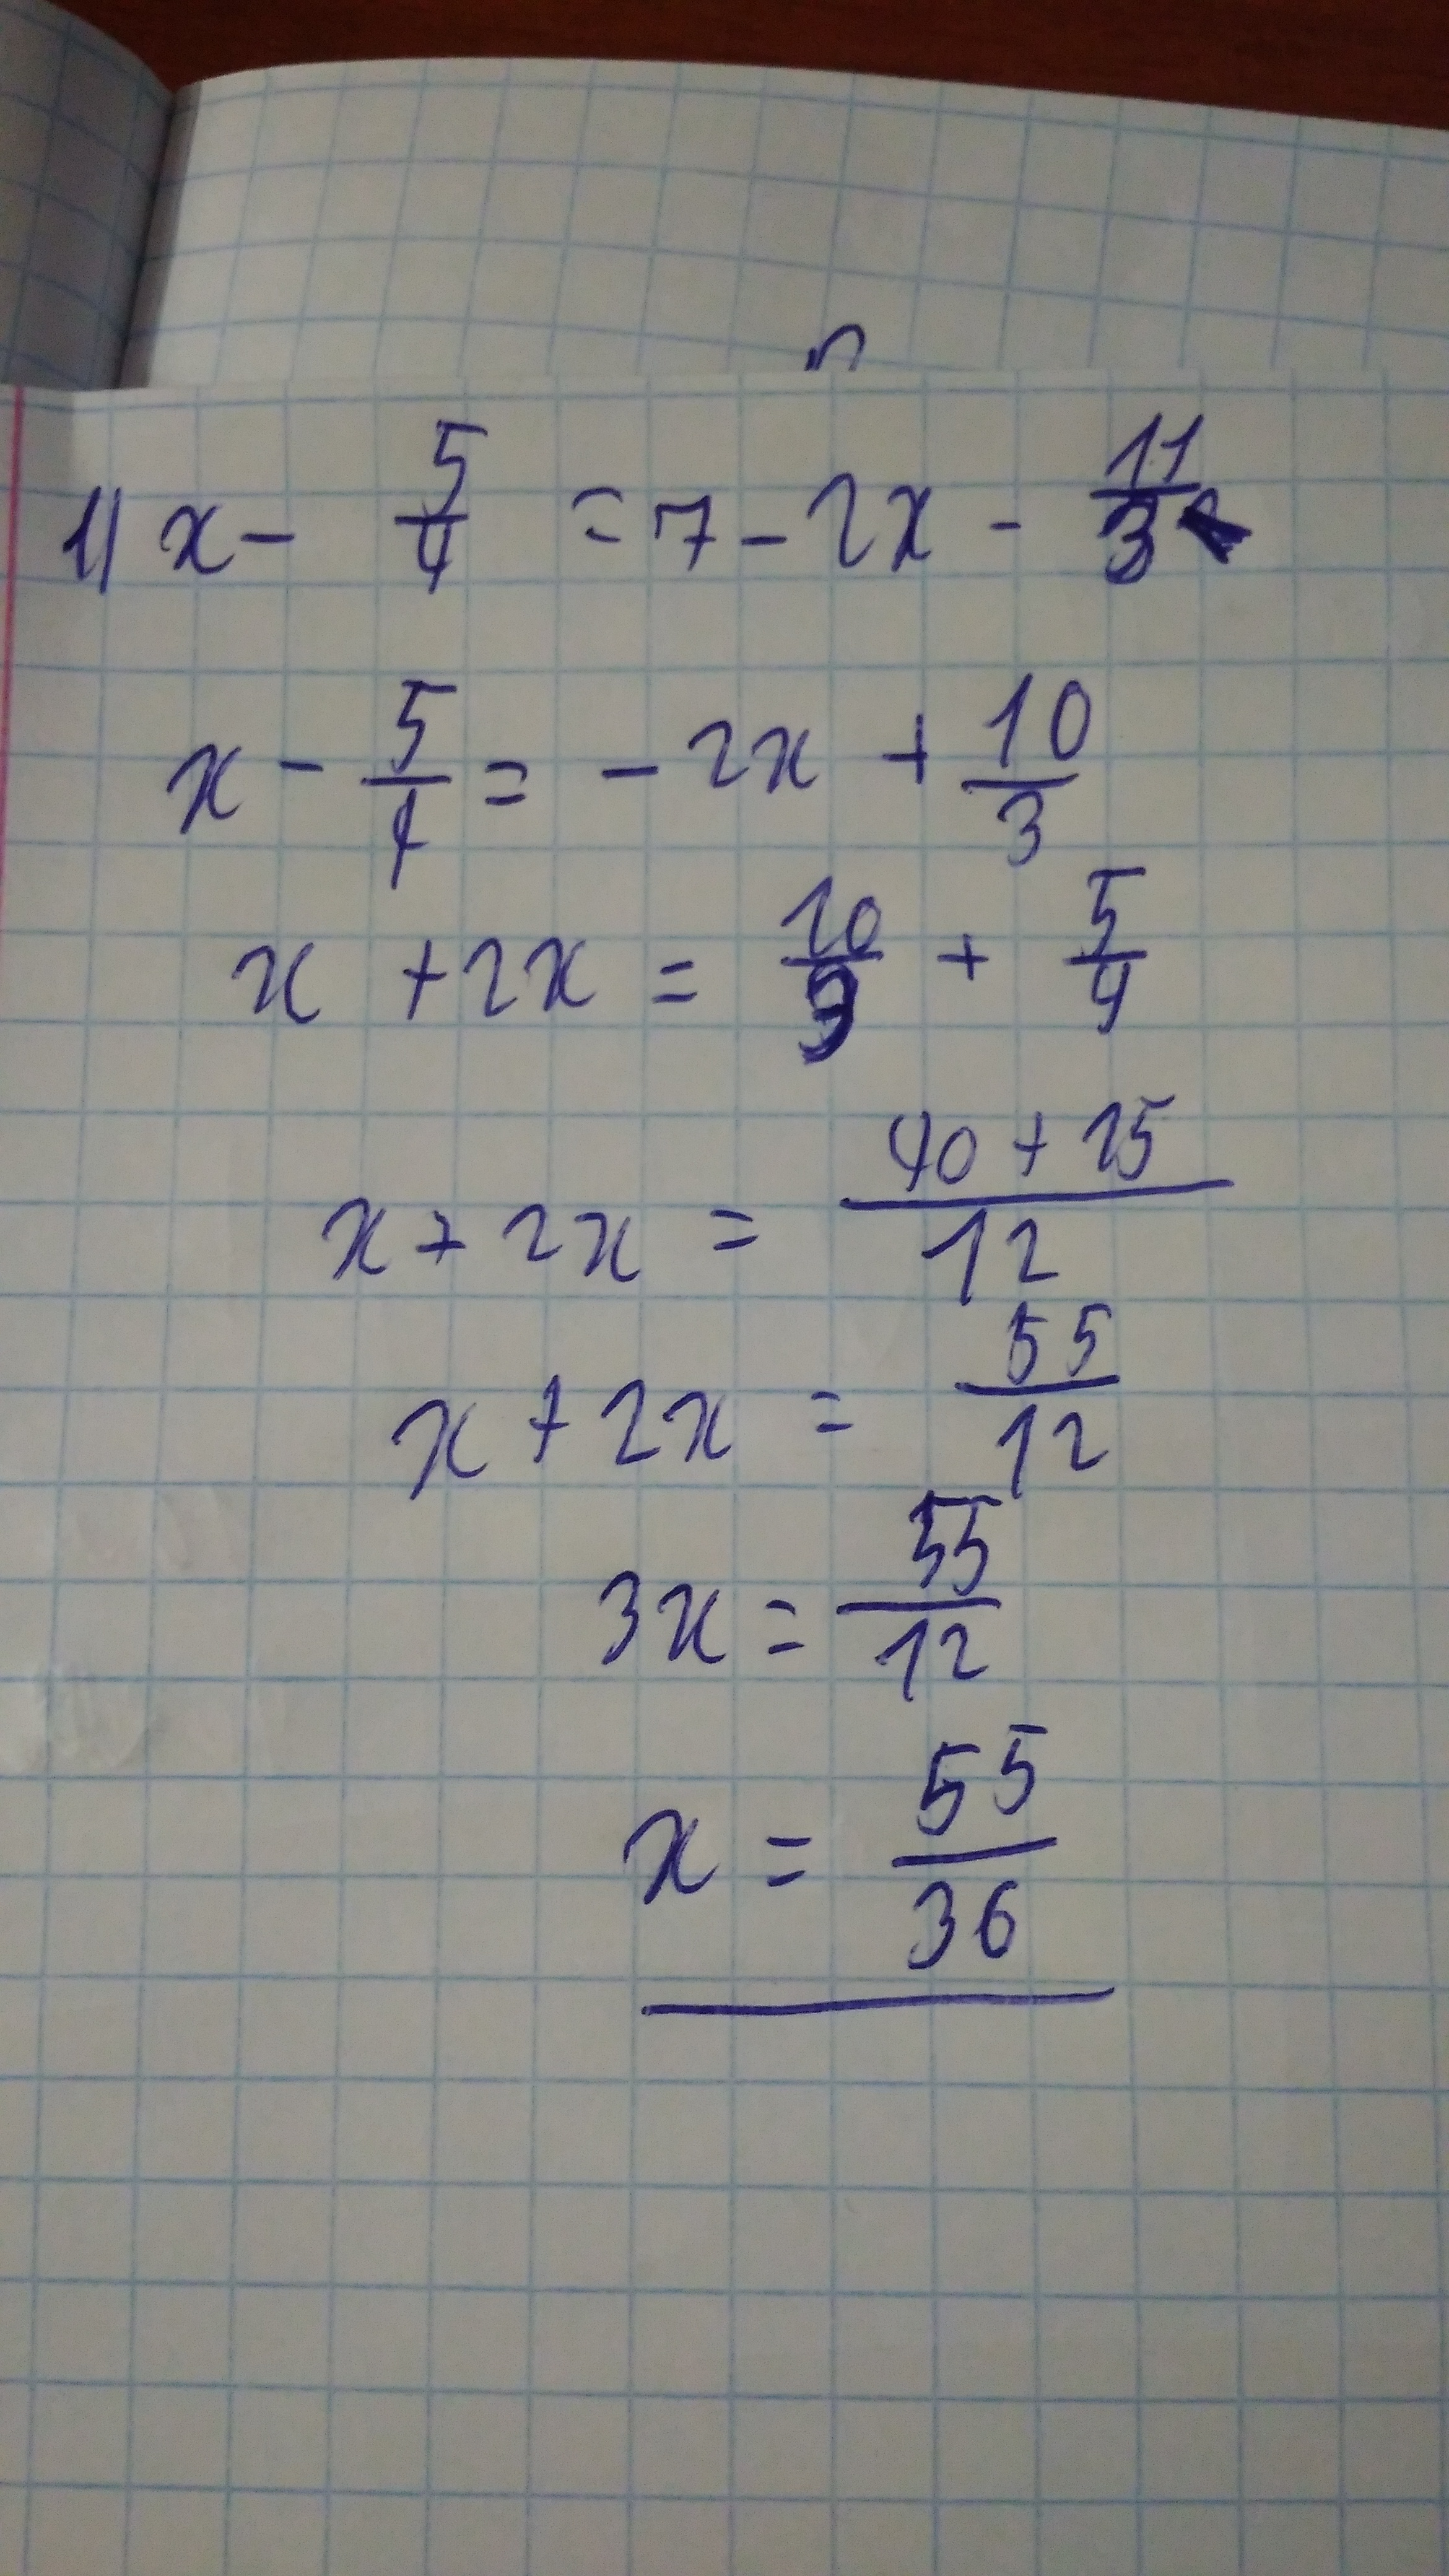 1) x - 5/4 = 7 - 2x - 11/3
x - 5/4 = - 2x + 10/3
x + 2x = 10/3 + 5/4
x + 2x = 40 + 15/12
x + 2x = 55/12
3x = 55/12
x = 55/36